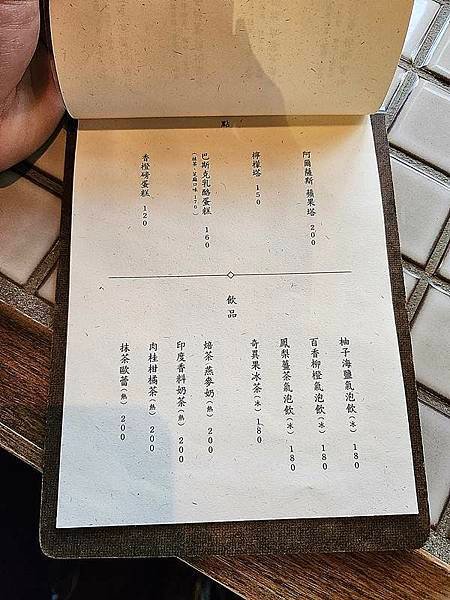 點
阿爾薩斯 蘋果塔 200
檸檬塔 150
巴斯克乳酪蛋糕 160
香橙磅蛋糕 120
飲品
柚子海鹽氣泡飲(冰) 180
百香柳橙氣泡飲(冰) 180
鳳梨薑茶氣泡飲(冰) 180
奇異果冰茶(冰) 180
焙茶燕麥奶(熱) 200
印度香料奶茶(熱) 200
肉桂柑橘茶(熱) 200
抹茶歐蕾(熱) 200